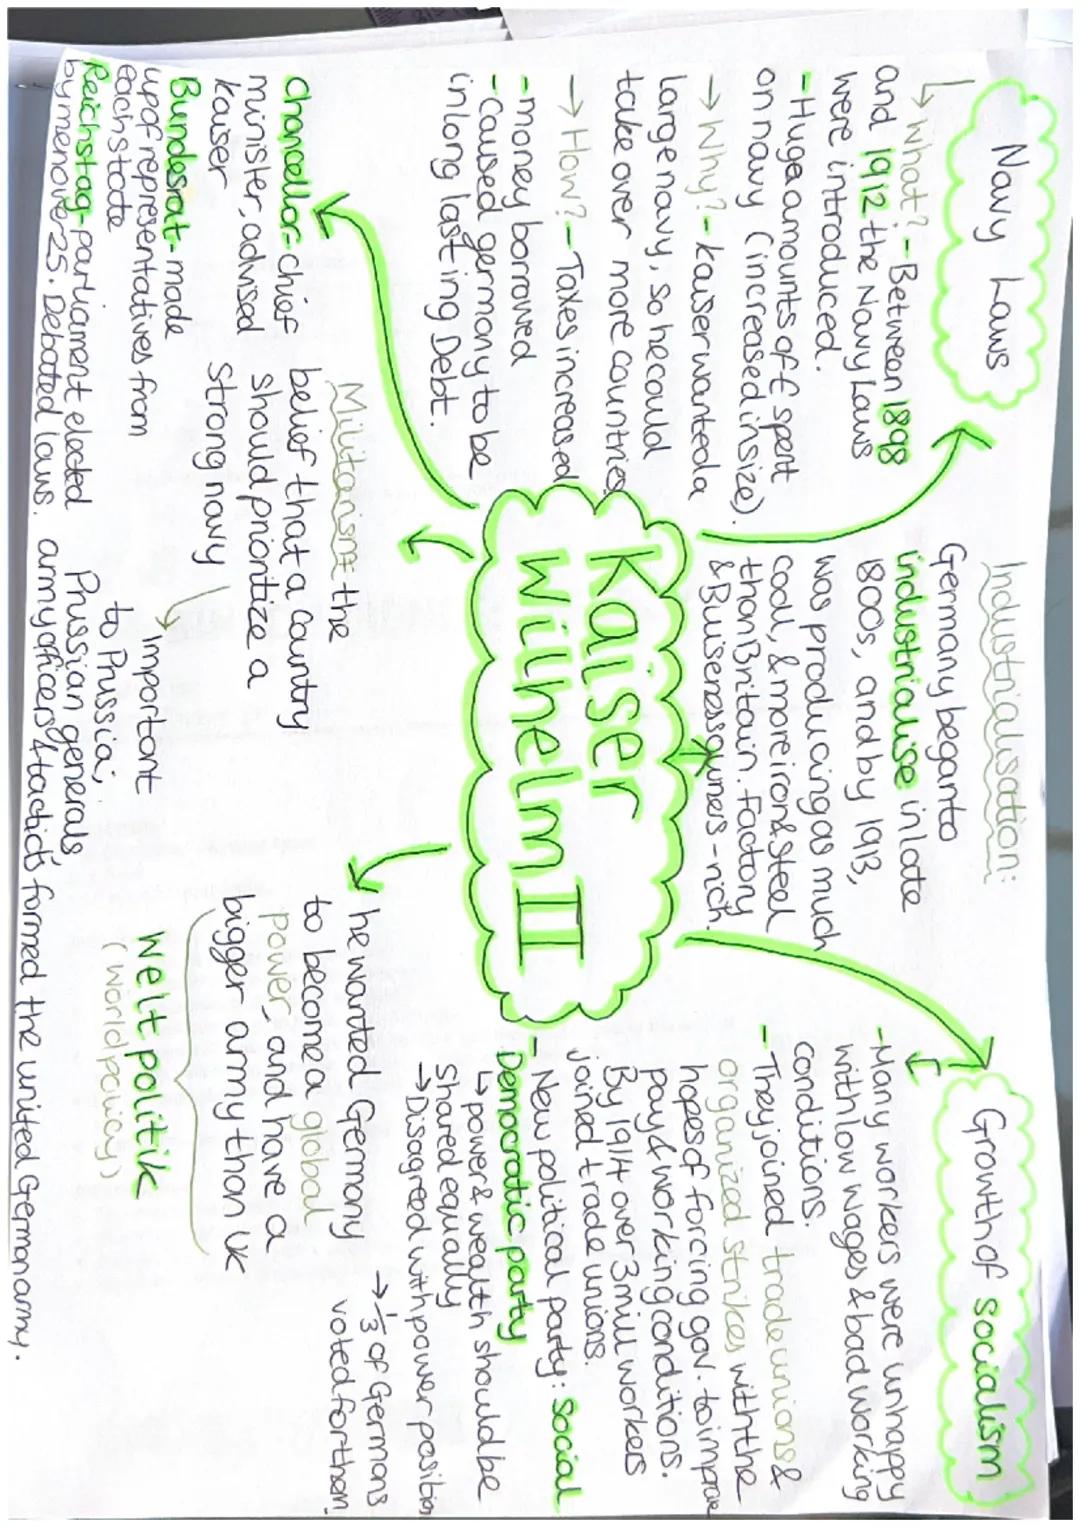 Navy Laws
↳ What? - Between 1898
and 1912 the Navy Laws
were introduced.
- Huge amounts of £ spent
on navy (increased in size).
→ Why? - kaiser wanted a
large navy, so he could
take over more countries
→ How? - Taxes increased
- money borrowed
- Caused germany to be
in long lasting Debt.
Industrialisation:
Germany began to
industrialise in late
1800s, and by 1913,
was producing as much
coal, & more iron & steel
than Britain. Factory
& Buiseness owners - rich.
Growth of socialism
- Many workers were unhappy
with low wages & bad working
conditions.
- They joined trade unions &
organized strikes with the
hopes of forcing gov. to improve
pay & working conditions.
By 1914 over 3 mill workers
joined trade unions.
- New political party: Social
Democratic party
↳ power & wealth should be
shared equally
→ Disagreed with power position
→ 1/3 of Germans
voted for them
Kaiser
Wilhelm II
chancellor - chief
minister, advised
kaiser
Bundesrat - made
up of representatives from
each state
Reichstag - parliament elected
by men over 25. Debated laws.
Militarism: the
belief that a country
should prioritize a
strong navy
↳ important
to Prussia;
Prussian generals,
army officers & tactics formed the united German army.
he wanted Germany
to become a global
power, and have a
bigger army than UK
Welt politik
(world policy)